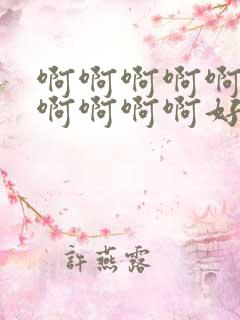 啊啊啊啊啊
啊啊啊啊好
許燕露